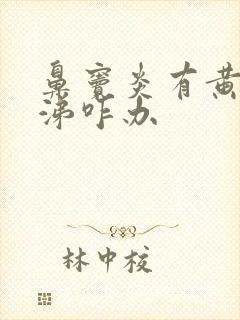 鼻窦炎有黄
涕咋办
林中校